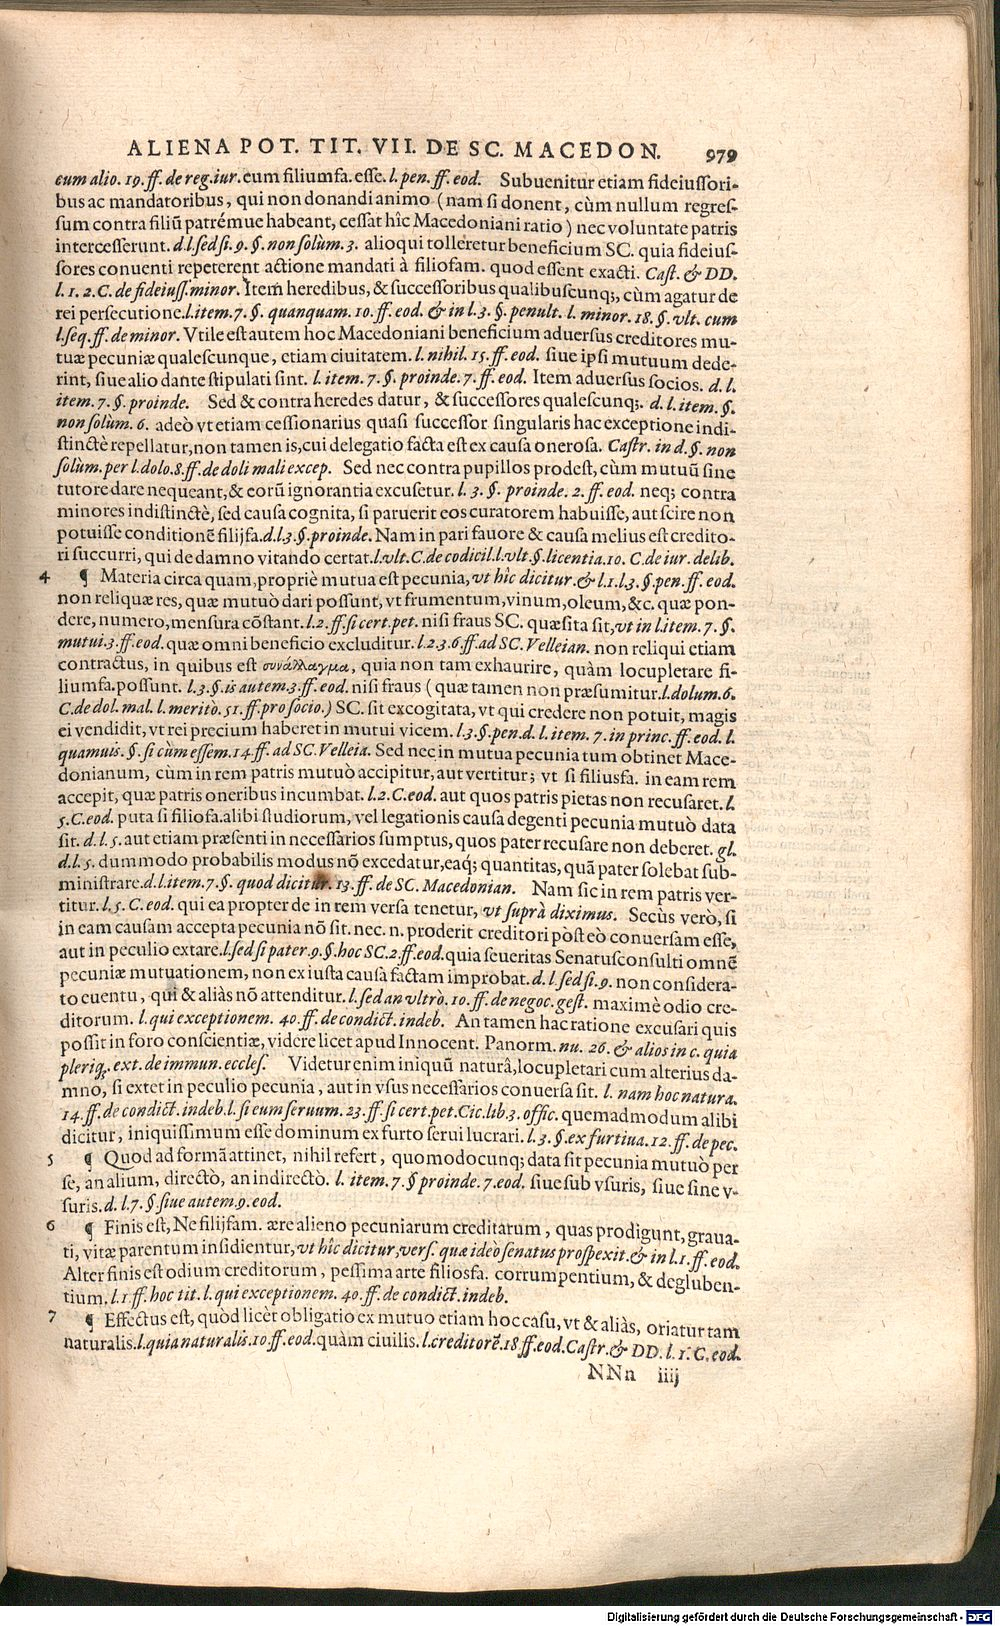 ALIENA POT. TIT. VII. DE SC. MACEDON. 979
cum alio. 19. ff. de reg. iur. eum filiumfa. esse. l. pen. ff. eod. Subuenitur etiam fideiussori-
bus ac mandatoribus, qui non donandi animo (nam si donent, cùm nullum regres-
sum contra filiũ patrémue habeant, cessat hîc Macedoniani ratio) nec voluntate patris
intercesserunt. d. l. sed si. 9. §. non solùm. 3. alioqui tolleretur beneficium SC. quia fideius-
sores conuenti repeterent actione mandati à filiofam. quod essent exacti. Cast. & DD.
l. 1. 2. C. de fideiuss. minor. Item heredibus, & successoribus qualibuscunq;, cùm agatur de
rei persecutione. l. item. 7. §. quanquam. 10. ff. eod. & in l. 3. §. penult. l. minor. 18. §. vlt. cum
l. seq. ff. de minor. Vtile est autem hoc Macedoniani beneficium aduersus creditores mu-
tuæ pecuniæ qualescunque, etiam ciuitatem. l. nihil. 15. ff. eod. siue ipsi mutuum dede-
rint, siue alio dante stipulati sint. l. item. 7. §. proinde. 7. ff. eod. Item aduersus socios. d. l.
item. 7. §. proinde. Sed & contra heredes datur, & successores qualescunq;. d. l. item. §.
non solùm. 6. adeò vt etiam cessionarius quasi successor singularis hac exceptione indi-
stinctè repellatur, non tamen is, cui delegatio facta est ex causa onerosa. Castr. in d. §. non
solùm. per l. dolo. 8. ff. de doli mali excep. Sed nec contra pupillos prodest, cùm mutuũ sine
tutore dare nequeant, & eorũ ignorantia excusetur. l. 3. §. proinde. 2. ff. eod. neq; contra
minores indistinctè, sed causa cognita, si paruerit eos curatorem habuisse, aut scire non
potuisse conditionẽ filijfa. d. l. 3. §. proinde. Nam in pari fauore & causa melius est credito-
ri succurri, qui de damno vitando certat. l. vlt. C. de codicil. l. vlt. §. licentia. 10. C. de iur. delib.
4 ¶ Materia circa quam, propriè mutua est pecunia, vt hîc dicitur. & l. 1. l. 3. §. pen. ff. eod.
non reliquæ res, quæ mutuò dari possunt, vt frumentum, vinum, oleum, &c. quæ pon-
dere, numero, mensura cõstant. l. 2. ff. si cert. pet. nisi fraus SC. quæsita sit, vt in l. item. 7. §.
mutui. 3. ff. eod. quæ omni beneficio excluditur. l. 2. 3. 6. ff. ad SC. Velleian. non reliqui etiam
contractus, in quibus est συνάλλαγμα, quia non tam exhaurire, quàm locupletare fi-
liumfa. possunt. l. 3. §. is autem. 3. ff. eod. nisi fraus (quæ tamen non præsumitur. l. dolum. 6.
C. de dol. mal. l. meritò. 51. ff. pro socio.) SC. sit excogitata, vt qui credere non potuit, magis
ei vendidit, vt rei precium haberet in mutui vicem. l. 3. §. pen. d. l. item. 7. in princ. ff. eod. l.
quamuis. §. si cùm essem. 14. ff. ad SC. Velleiã. Sed nec in mutua pecunia tum obtinet Mace-
donianum, cùm in rem patris mutuò accipitur, aut vertitur; vt si filiusfa. in eam rem
accepit, quæ patris oneribus incumbat. l. 2. C. eod. aut quos patris pietas non recusaret. l.
5. C. eod. puta si filiofa. alibi studiorum, vel legationis causa degenti pecunia mutuò data
sit. d. l. 5. aut etiam præsenti in necessarios sumptus, quos pater recusare non deberet. gl.
d. l. 5. dummodo probabilis modus nõ excedatur, eaq́; quantitas, quã pater solebat sub-
ministrare. d. l. item. 7. §. quod dicitur. 13. ff. de SC. Macedonian. Nam sic in rem patris ver-
titur. l. 5. C. eod. qui ea propter de in rem versa tenetur, vt suprà diximus. Secùs verò, si
in eam causam accepta pecunia nõ sit. nec. n. proderit creditori pòst eò conuersam esse,
aut in peculio extare. l. sed si pater. 9. §. hoc SC. 2. ff. eod. quia seueritas Senatusconsulti omnẽ
pecuniæ mutuationem, non ex iusta causa factam improbat. d. l. sed si. 9. non considera-
to euentu, qui & aliàs nõ attenditur. l. sed an vltrò. 10. ff. de negoc. gest. maximè odio cre-
ditorum. l. qui exceptionem. 40. ff. de condict. indeb. An tamen hac ratione excusari quis
possit in foro conscientiæ, videre licet apud Innocent. Panorm. nu. 26. & alios in c. quia
pleriq;. ext. de immun. eccles. Videtur enim iniquũ naturâ, locupletari cum alterius da-
mno, si extet in peculio pecunia, aut in vsus necessarios conuersa sit. l. nam hoc natura.
14. ff. de condict. indeb. l. si eum seruum. 23. ff. si cert. pet. Cic. lib. 3. offic. quemadmodum alibi
dicitur, iniquissimum esse dominum ex furto serui lucrari. l. 3. §. ex furtiua. 12. ff. de pec.
5 ¶ Quod ad formã attinet, nihil refert, quomodocunq; data sit pecunia mutuò per
se, an alium, directò, an indirectò. l. item. 7. § proinde. 7. eod. siue sub vsuris, siue sine v-
suris. d. l. 7. § siue autem. 9. eod.
6 ¶ Finis est, Ne filijfam. ære alieno pecuniarum creditarum, quas prodigunt, graua-
ti, vitæ parentum insidientur, vt hîc dicitur, vers. quæ ideò senatus prospexit. & in l. 1. ff. eod.
Alter finis est odium creditorum, pessima arte filiosfa. corrumpentium, & degluben-
tium. l. 1. ff. hoc tit. l. qui exceptionem. 40. ff. de condict. indeb.
7 ¶ Effectus est, quòd licèt obligatio ex mutuo etiam hoc casu, vt & aliàs, oriatur tam
naturalis. l. quia naturalis. 10. ff. eod. quàm ciuilis. l. creditorẽ. 18 ff. eod. Castr. & DD. l. 1. C. eod.
NNn iiij
Digitalisierung gefördert durch die Deutsche Forschungsgemeinschaft - DFG